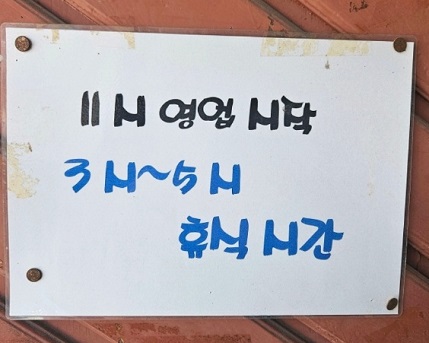 11시 영업 시작
3시~5시
휴식 시간